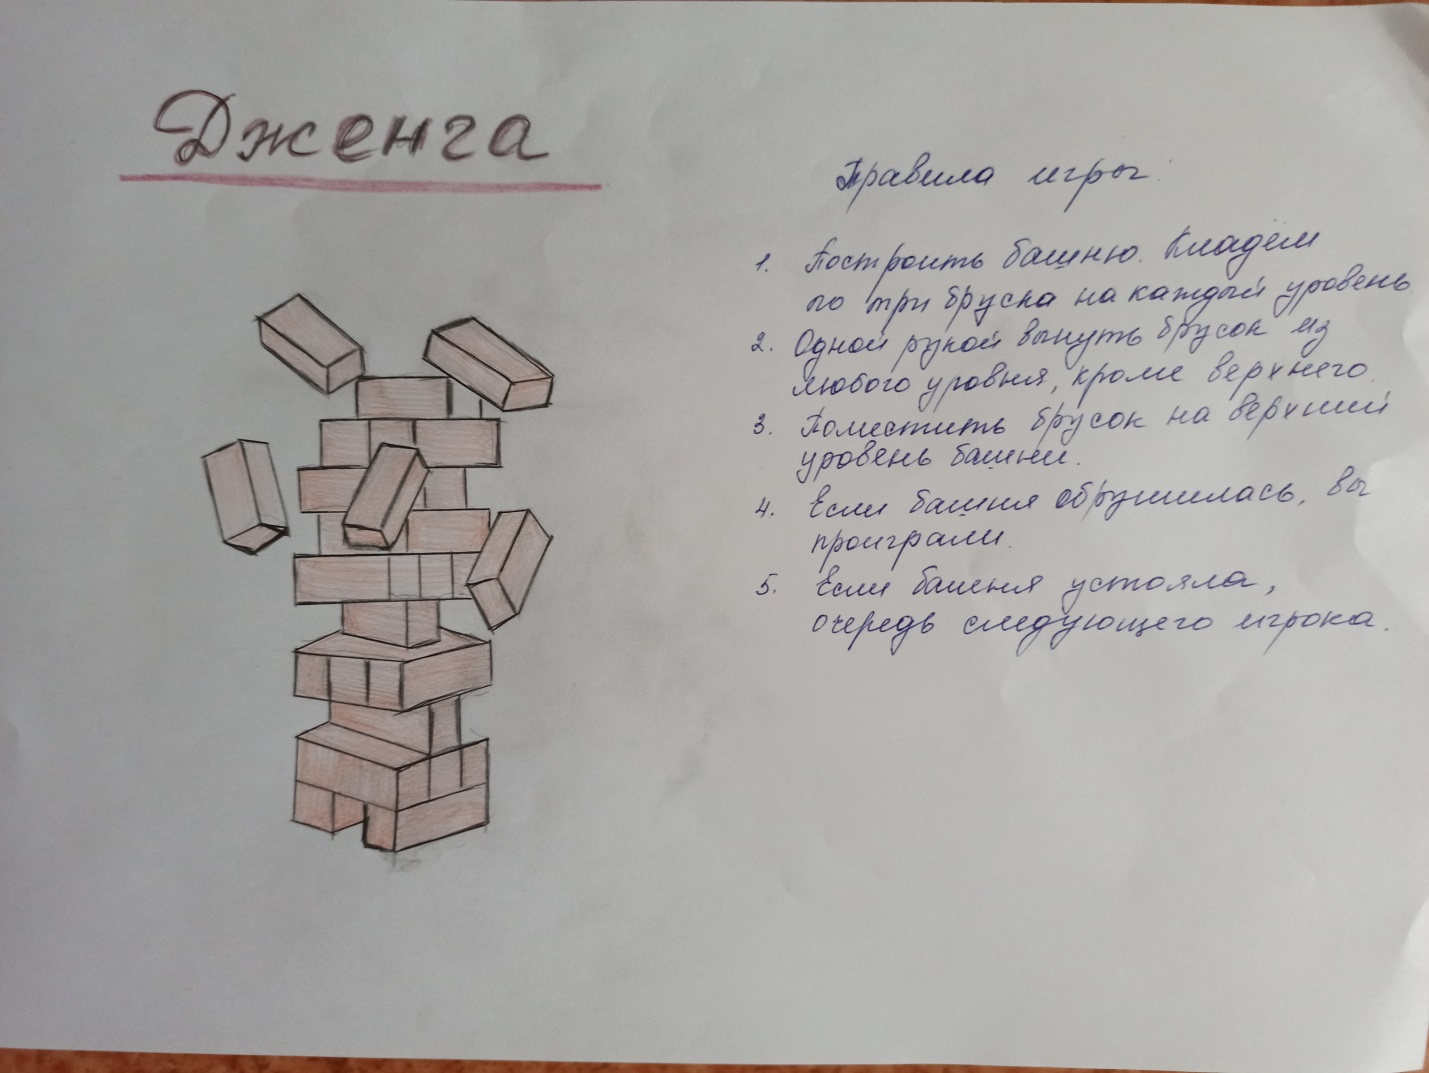 Дженга
Правила игры
1. Построить башню. Кладём
по три бруска на каждый уровень
2. Одной рукой вынуть брусок из
любого уровня, кроме верхнего.
3. Поместить брусок на верхний
уровень башни.
4. Если башня обрушилась, вы
проиграли.
5. Если башня устояла,
очередь следующего игрока.